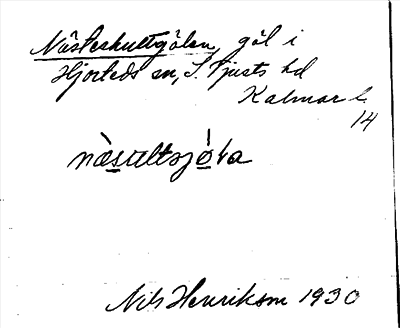 Nästeshultgölen, göl i
Hjorteds sn, S. Tjusts hd
Kalmar l.
14
Nils Henriksson 1930